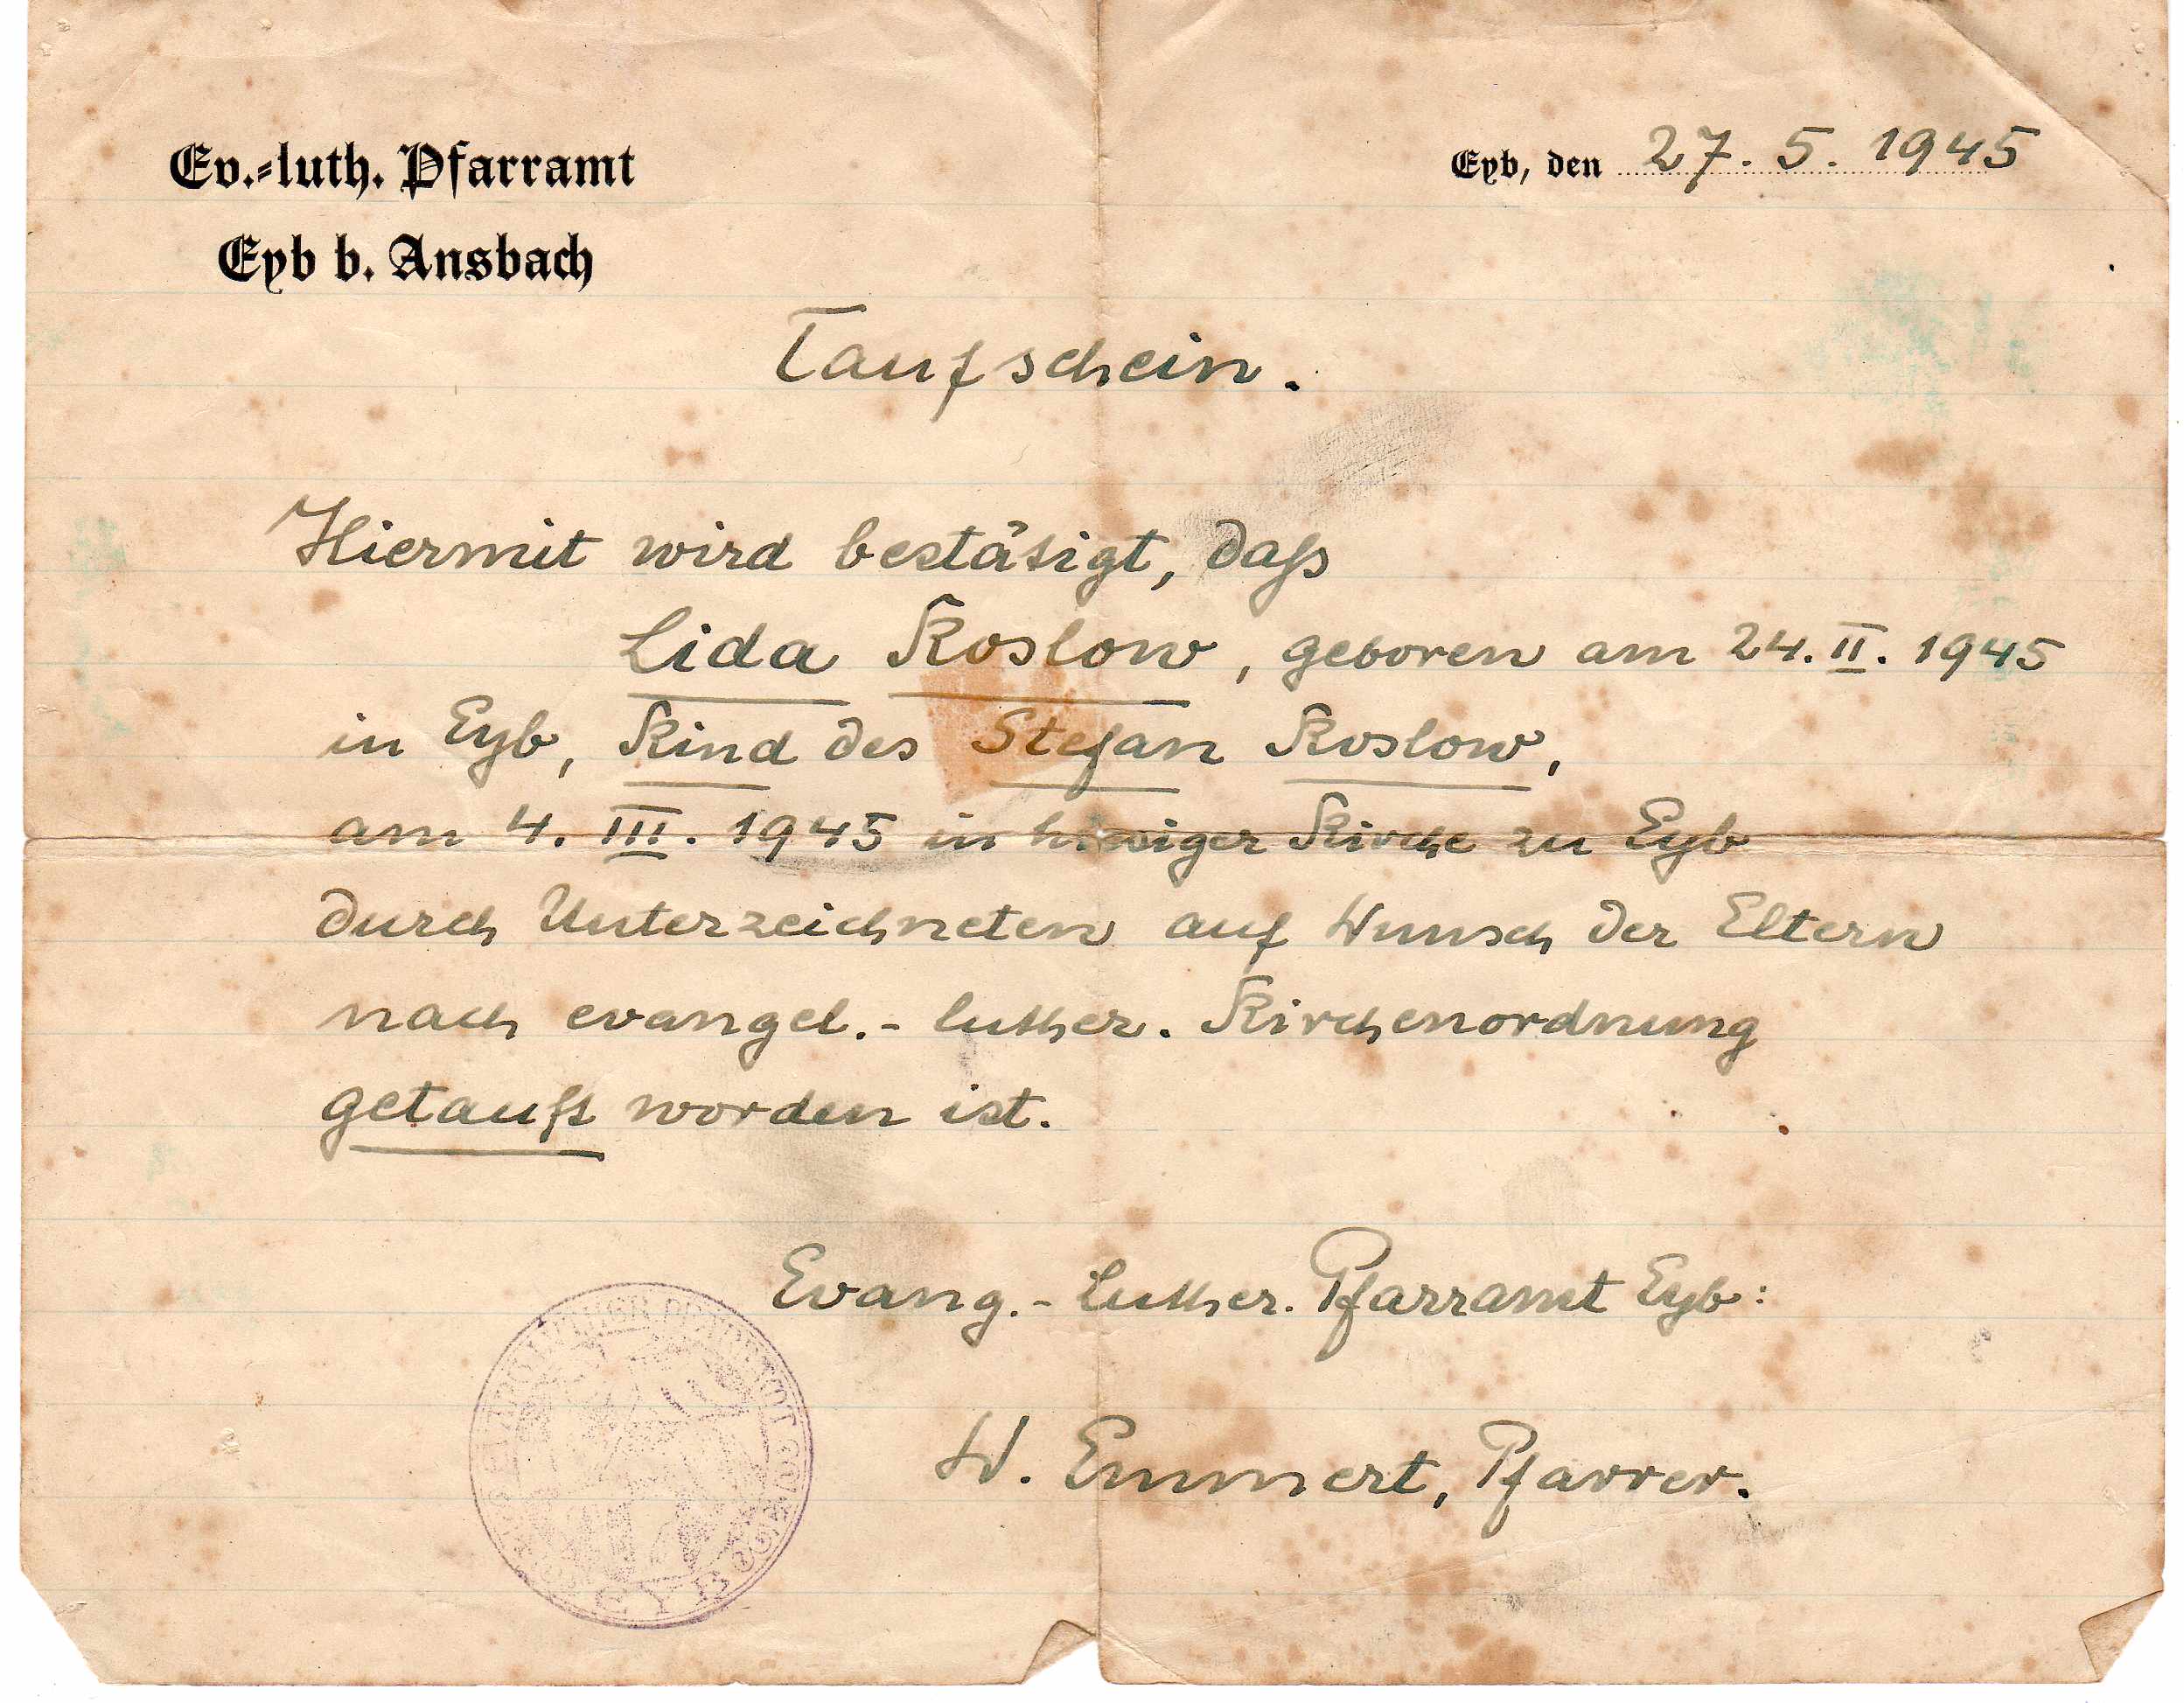 Ev.-luth. Pfarramt
Eyb b. Ansbach
Eyb, den 27. 5. 1945
Taufschein.
Hiermit wird bestätigt, daß
Lida Koslow, geboren am 24. II. 1945
in Eyb, Kind des Stefan Koslow,
am 4. III. 1945 in hiesiger Kirche zu Eyb
durch Unterzeichneten auf Wunsch der Eltern
nach evangel.- luther. Kirchenordnung
getauft worden ist.
Evang.- Luther. Pfarramt Eyb:
W. Emmert, Pfarrer.
EYB